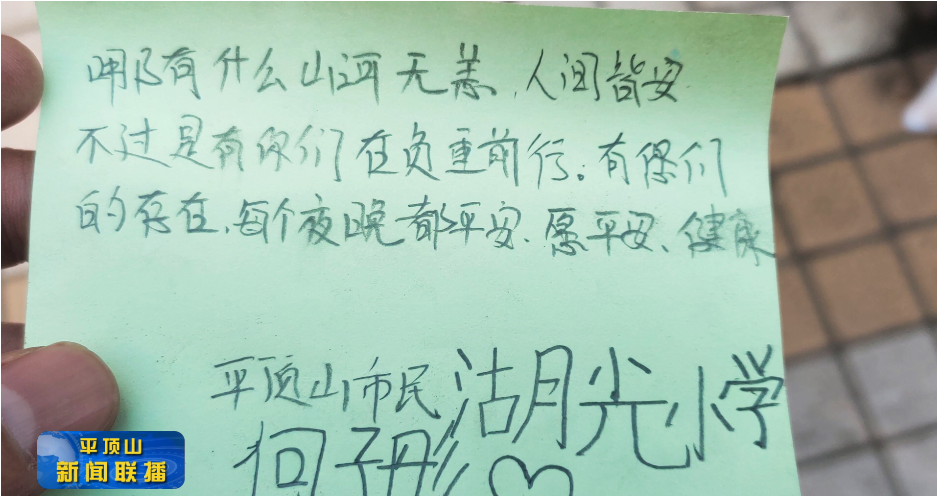 哪有什么山河无恙、人间皆安
不过是有你们在负重前行。有你们
的存在、每个夜晚都平安、愿平安、健康
平顶山市民 湖月光小学
何子彤♡
平顶山
新闻联播